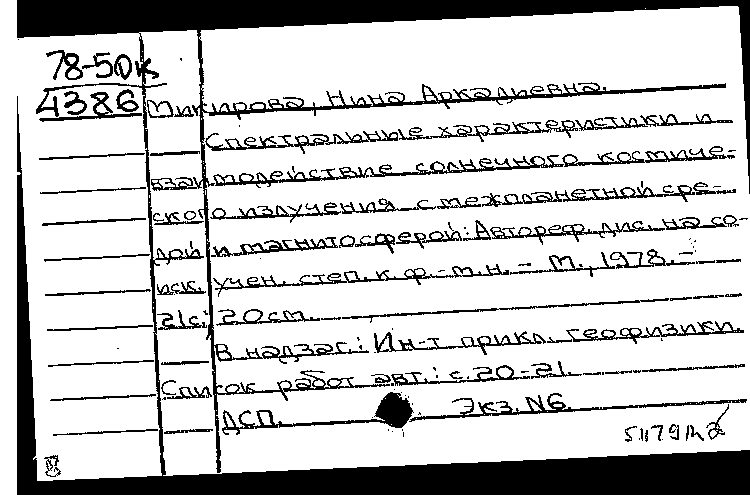 78-50к
4386 Микирова, Нина Аркадьевна.
Спектральные характеристики и
взаимодействие солнечного космиче-
ского излучения с межпланетной сре-
дой и магнитосферой: Автореф. дис. на со-
иск. учен. степ. к. ф.-м. н. - М., 1978. -
21с; 20см.
В надзаг.: Ин-т прикл. геофизики.
Список работ авт.: с. 20-21.
ДСП. Экз. N6.